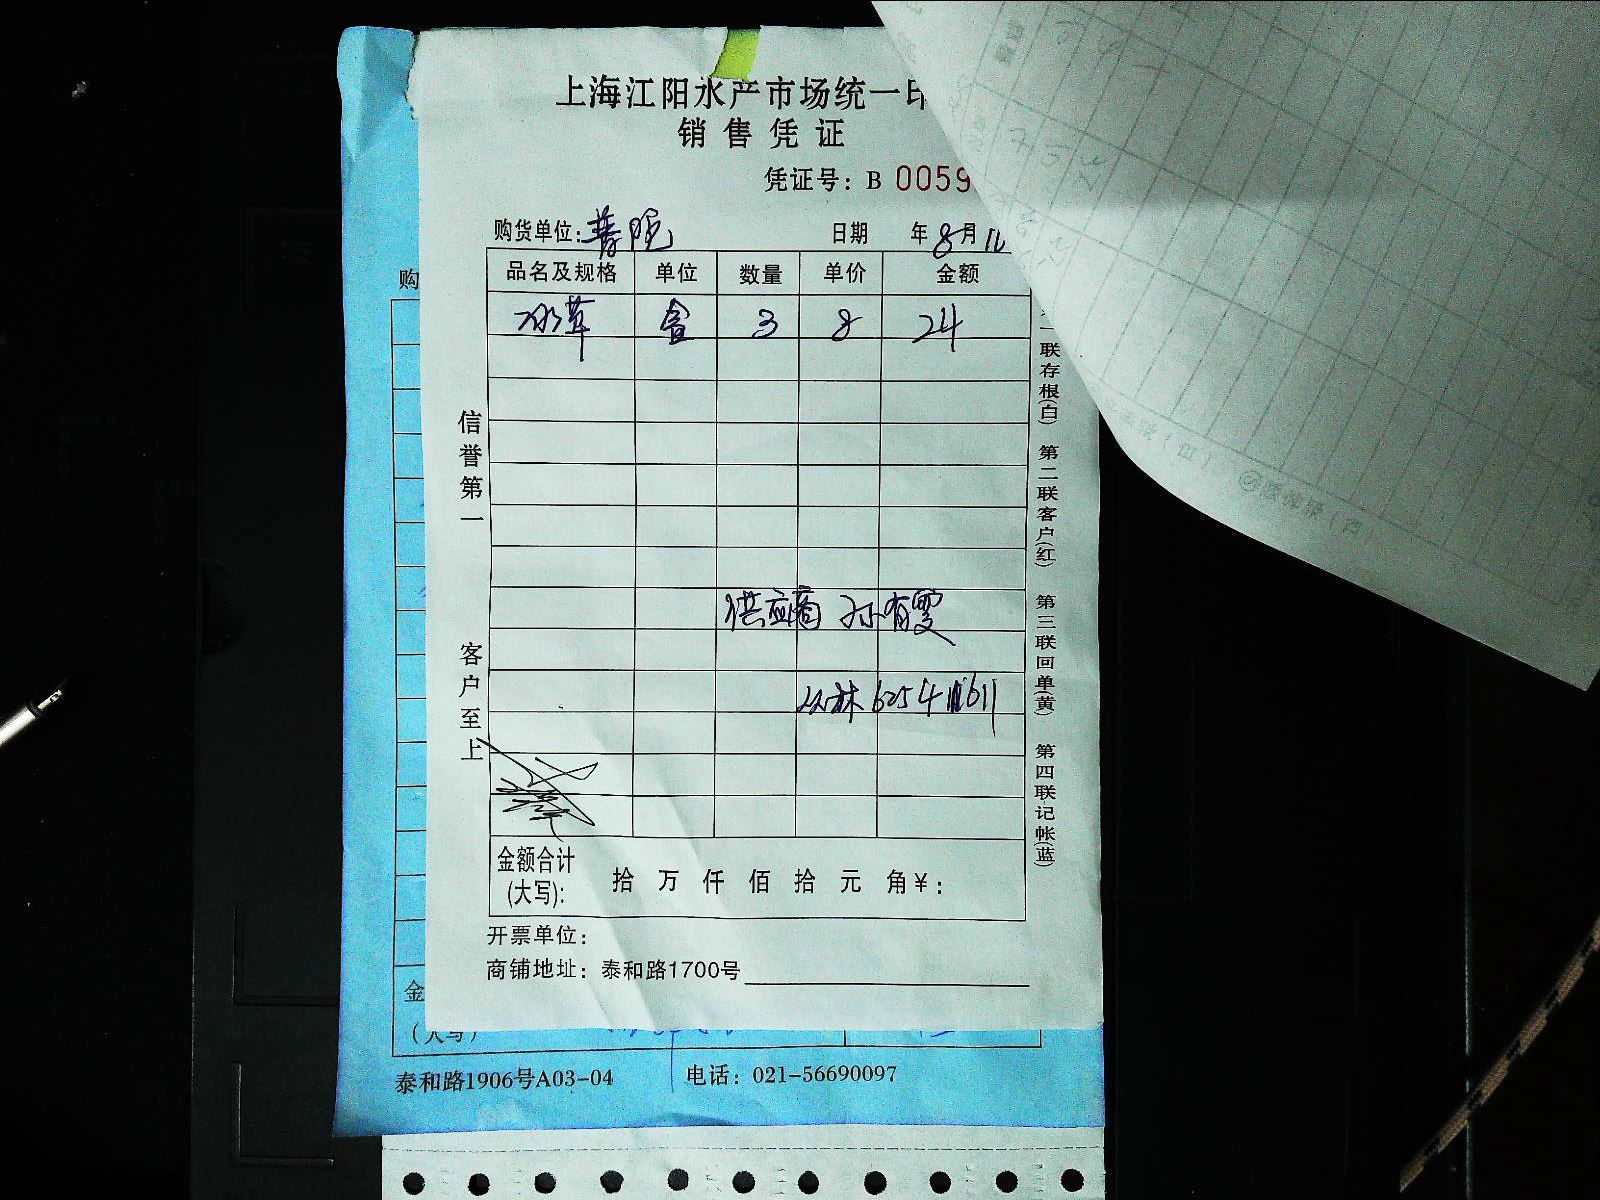 上海江阳水产市场统一印
销售凭证
凭证号：B 0059
购货单位：普陀
日期 年8月11
品名及规格 单位 数量 单价 金额
冰草 盒 3 8 24
供应商 孙有雯
信誉第一
客户至上
联存根(白) 第二联客户(红) 第三联回单(黄) 第四联记帐(蓝)
金额合计
(大写)： 拾 万 仟 佰 拾 元 角￥：
开票单位：
商铺地址：泰和路1700号
购
金
(大写)
泰和路1906号A03-04 电话：021-56690097